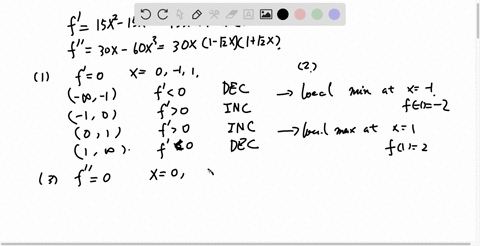 f' = 15x² - 15x
f'' = 30x - 60x³ = 30x (1-√2x)(1+√2x)
(1) f'=0 x= 0, -1, 1, (2)
(-∞, -1) f'<0 DEC → local min at x=-1
(-1, 0) f'>0 INC f(-1)=-2
(0, 1) f'>0 INC → local max at x=1
(1, ∞) f'<0 DEC f(1)=2
(3) f''=0 x=0,